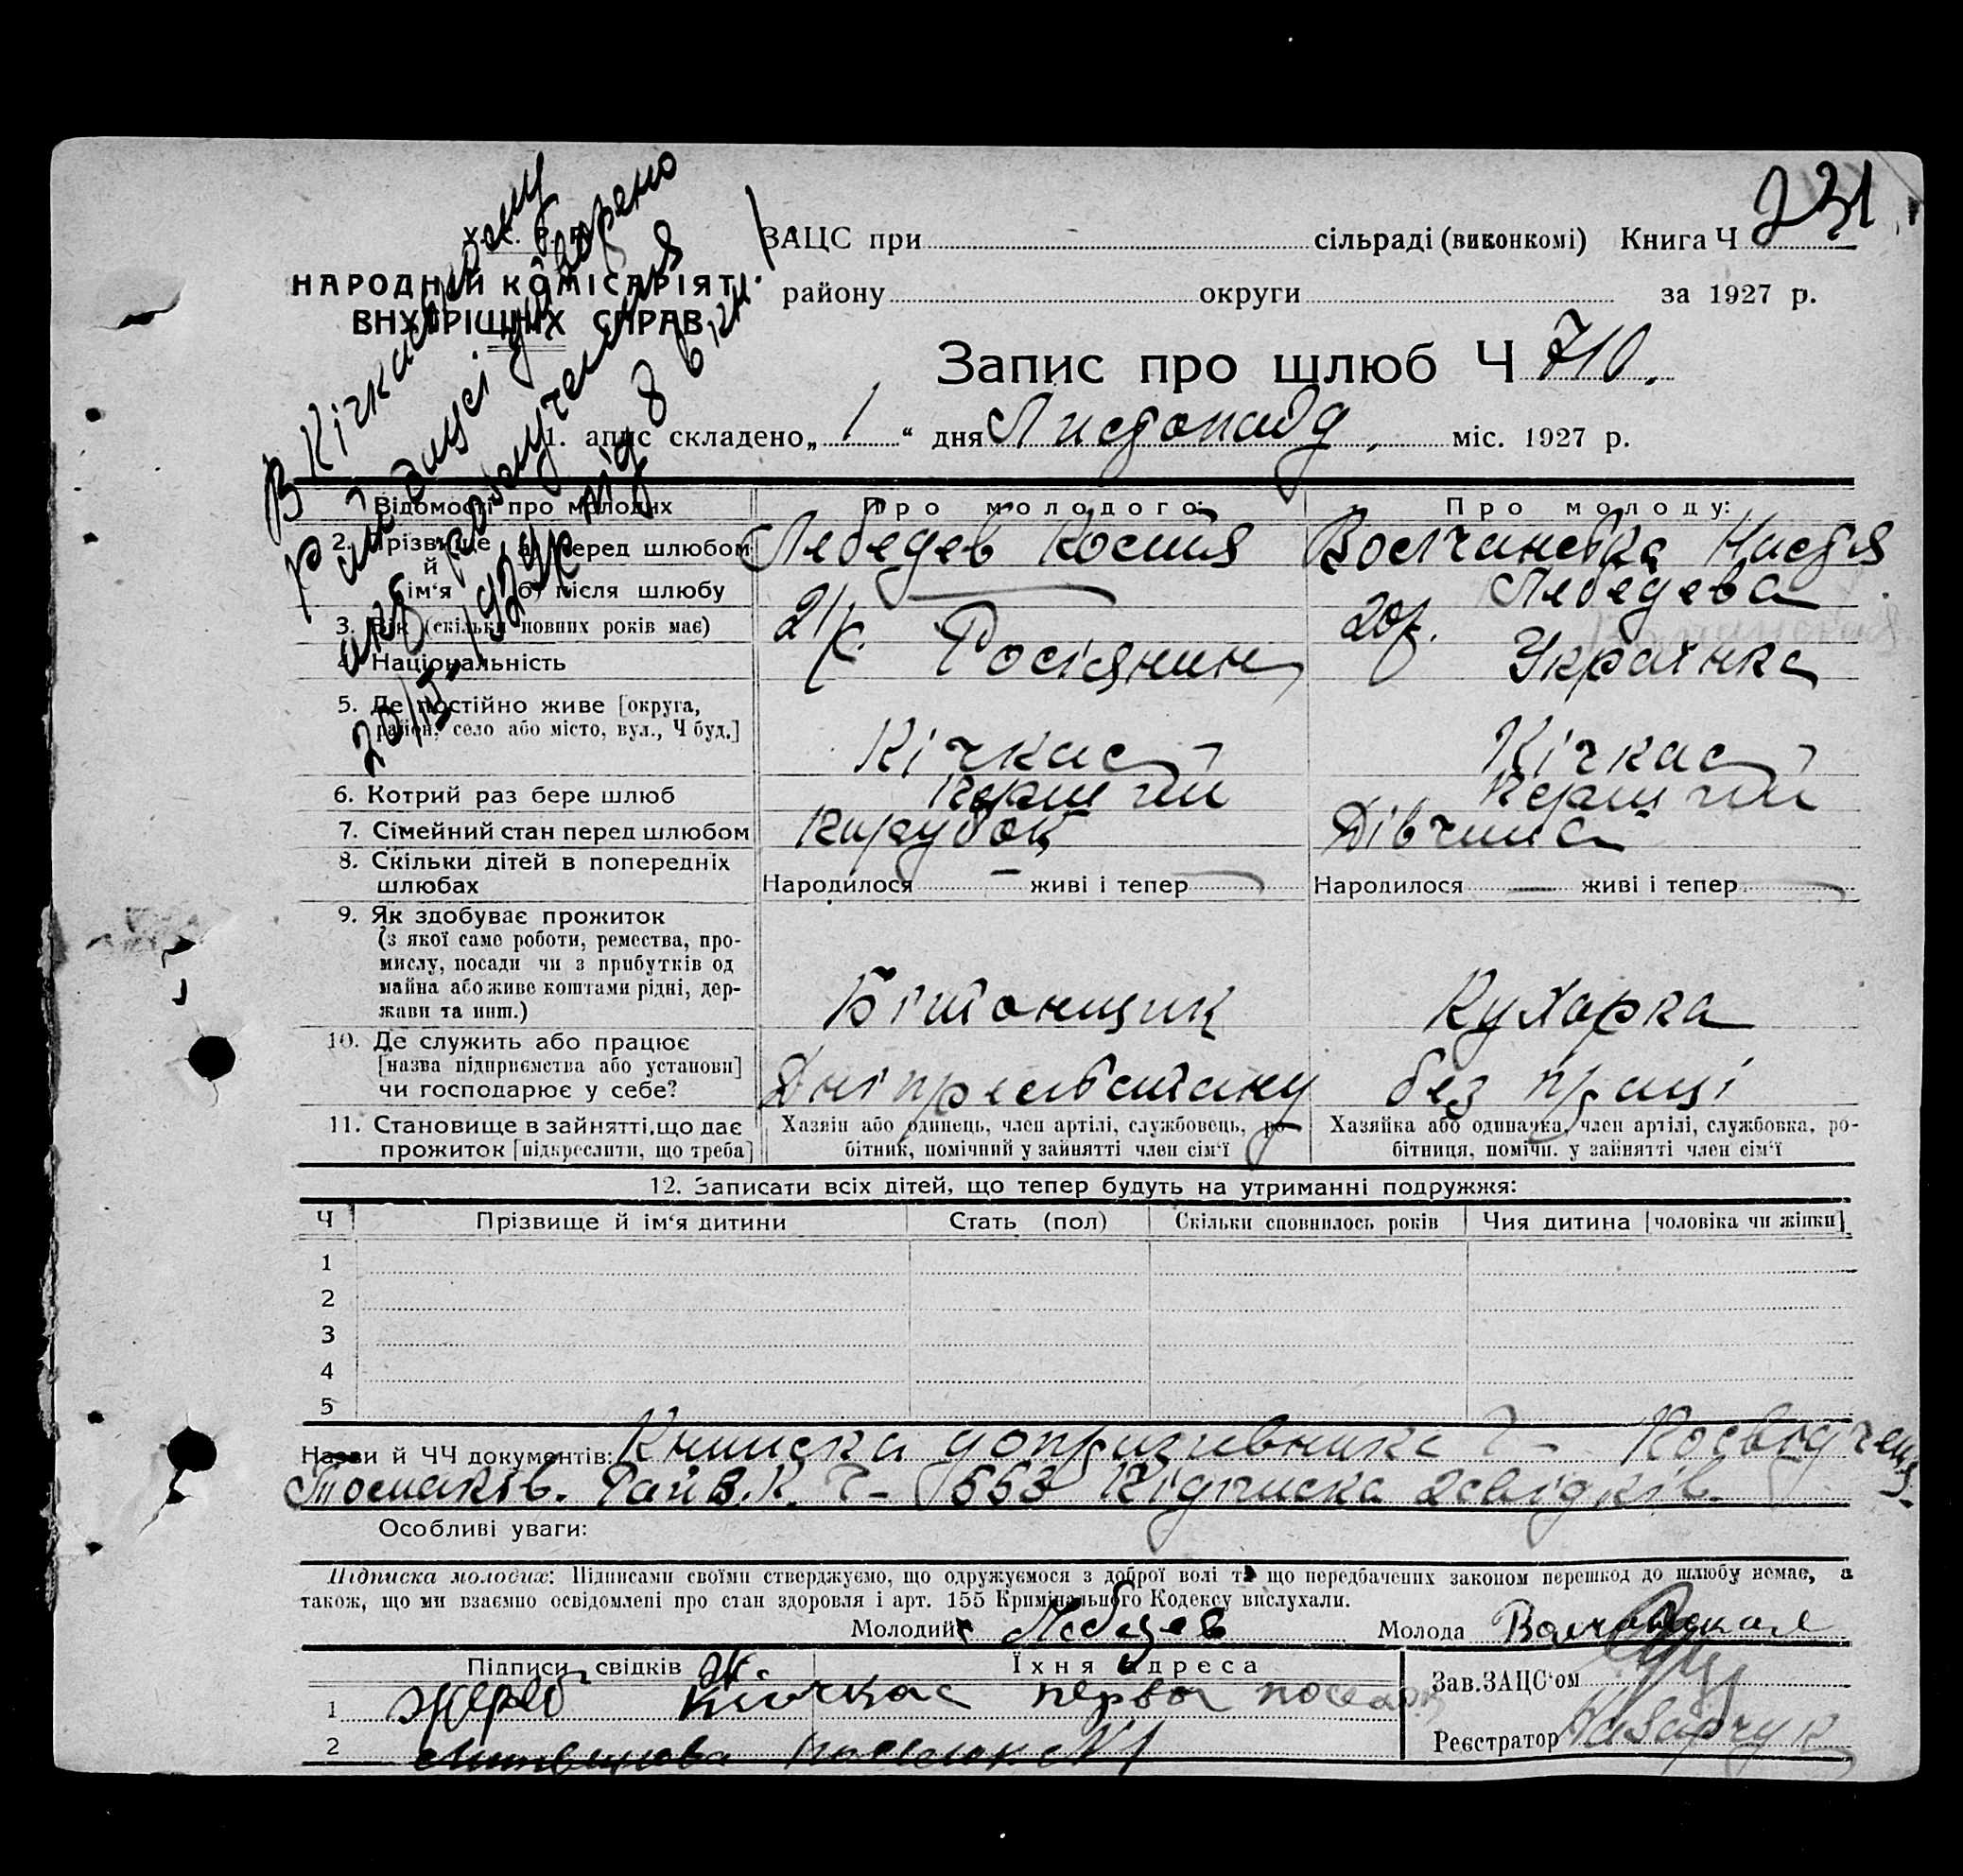 231
ЗАЦС при сільраді (виконкомі) Книга Ч
НАРОДНИЙ КОМІСАРІЯТ
ВНУТРІШНІХ СПРАВ
району округи за 1927 р.
В Кічкаському
рай
20/II 1929 р.
Запис про шлюб Ч 710.
1. апис складено „ 1 “ дня Листопада міс. 1927 р.
Відомості про молодих Про молодого: Про молоду:
2. Прізвище й ім‘я а) перед шлюбом Лебедев Костя Волчанська Настя
б) після шлюбу Лебедева
3. Вік (скільки повних років має) 21 р. 20 р.
4. Національність Росіянин Українка
5. Де постійно живе [округа,
район, село або місто, вул., Ч буд.] Кічкас Кічкас
6. Котрий раз бере шлюб Перший Перший
7. Сімейний стан перед шлюбом Парубок Дівчина
8. Скільки дітей в попередніх
шлюбах Народилося — живі і тепер Народилося — живі і тепер
9. Як здобуває прожиток
(з якої саме роботи, ремества, про-
мислу, посади чи з прибутків од
майна або живе коштами рідні, дер-
жави та инш.) Бітонщик Кухарка
10. Де служить або працює
[назва підприємства або установи]
чи господарює у себе? без праці
11. Становище в зайнятті, що дає
прожиток [підкреслити, що треба]
Хазяін або одинець, член артілі, службовець, ро-
бітник, помічний у зайнятті член сім‘ї
Хазяйка або одиначка, член артілі, службовка, ро-
бітниця, помічн. у зайнятті член сім‘ї
12. Записати всіх дітей, що тепер будуть на утриманні подружжя:
Ч Прізвище й ім‘я дитини Стать (пол) Скільки сповнилось років Чия дитина [чоловіка чи жінки]
1
2
3
4
5
Назви й ЧЧ документів: Книжка допризивника Ч – Посвідчення
Райв.К. Ч – 553 Підписка 2 свідків.
Особливі уваги:
Підписка молодих: Підписами своїми стверджуємо, що одружуємося з доброї волі та що передбачених законом перешкод до шлюбу немає, а
також, що ми взаємно освідомлені про стан здоровля і арт. 155 Кримінального Кодексу вислухали.
Молодий Лебедев Молода Волчанская
Підписи свідків Їхня адреса
Зав. ЗАЦС‘ом
1 Жереб Кичкас перва
2 поселок №1
Реєстратор Назарчук